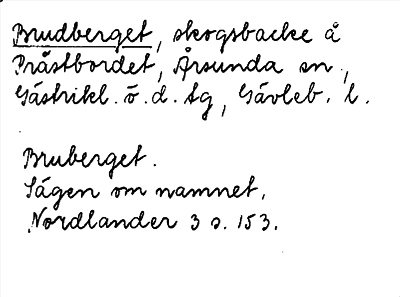 Brudberget, skogsbacke å
Prästbordet, Årsunda sn.,
Gästrikl. ö. d. tg, Gävleb. l.
Bruberget.
Sägen om namnet.
Nordlander 3 s. 153.